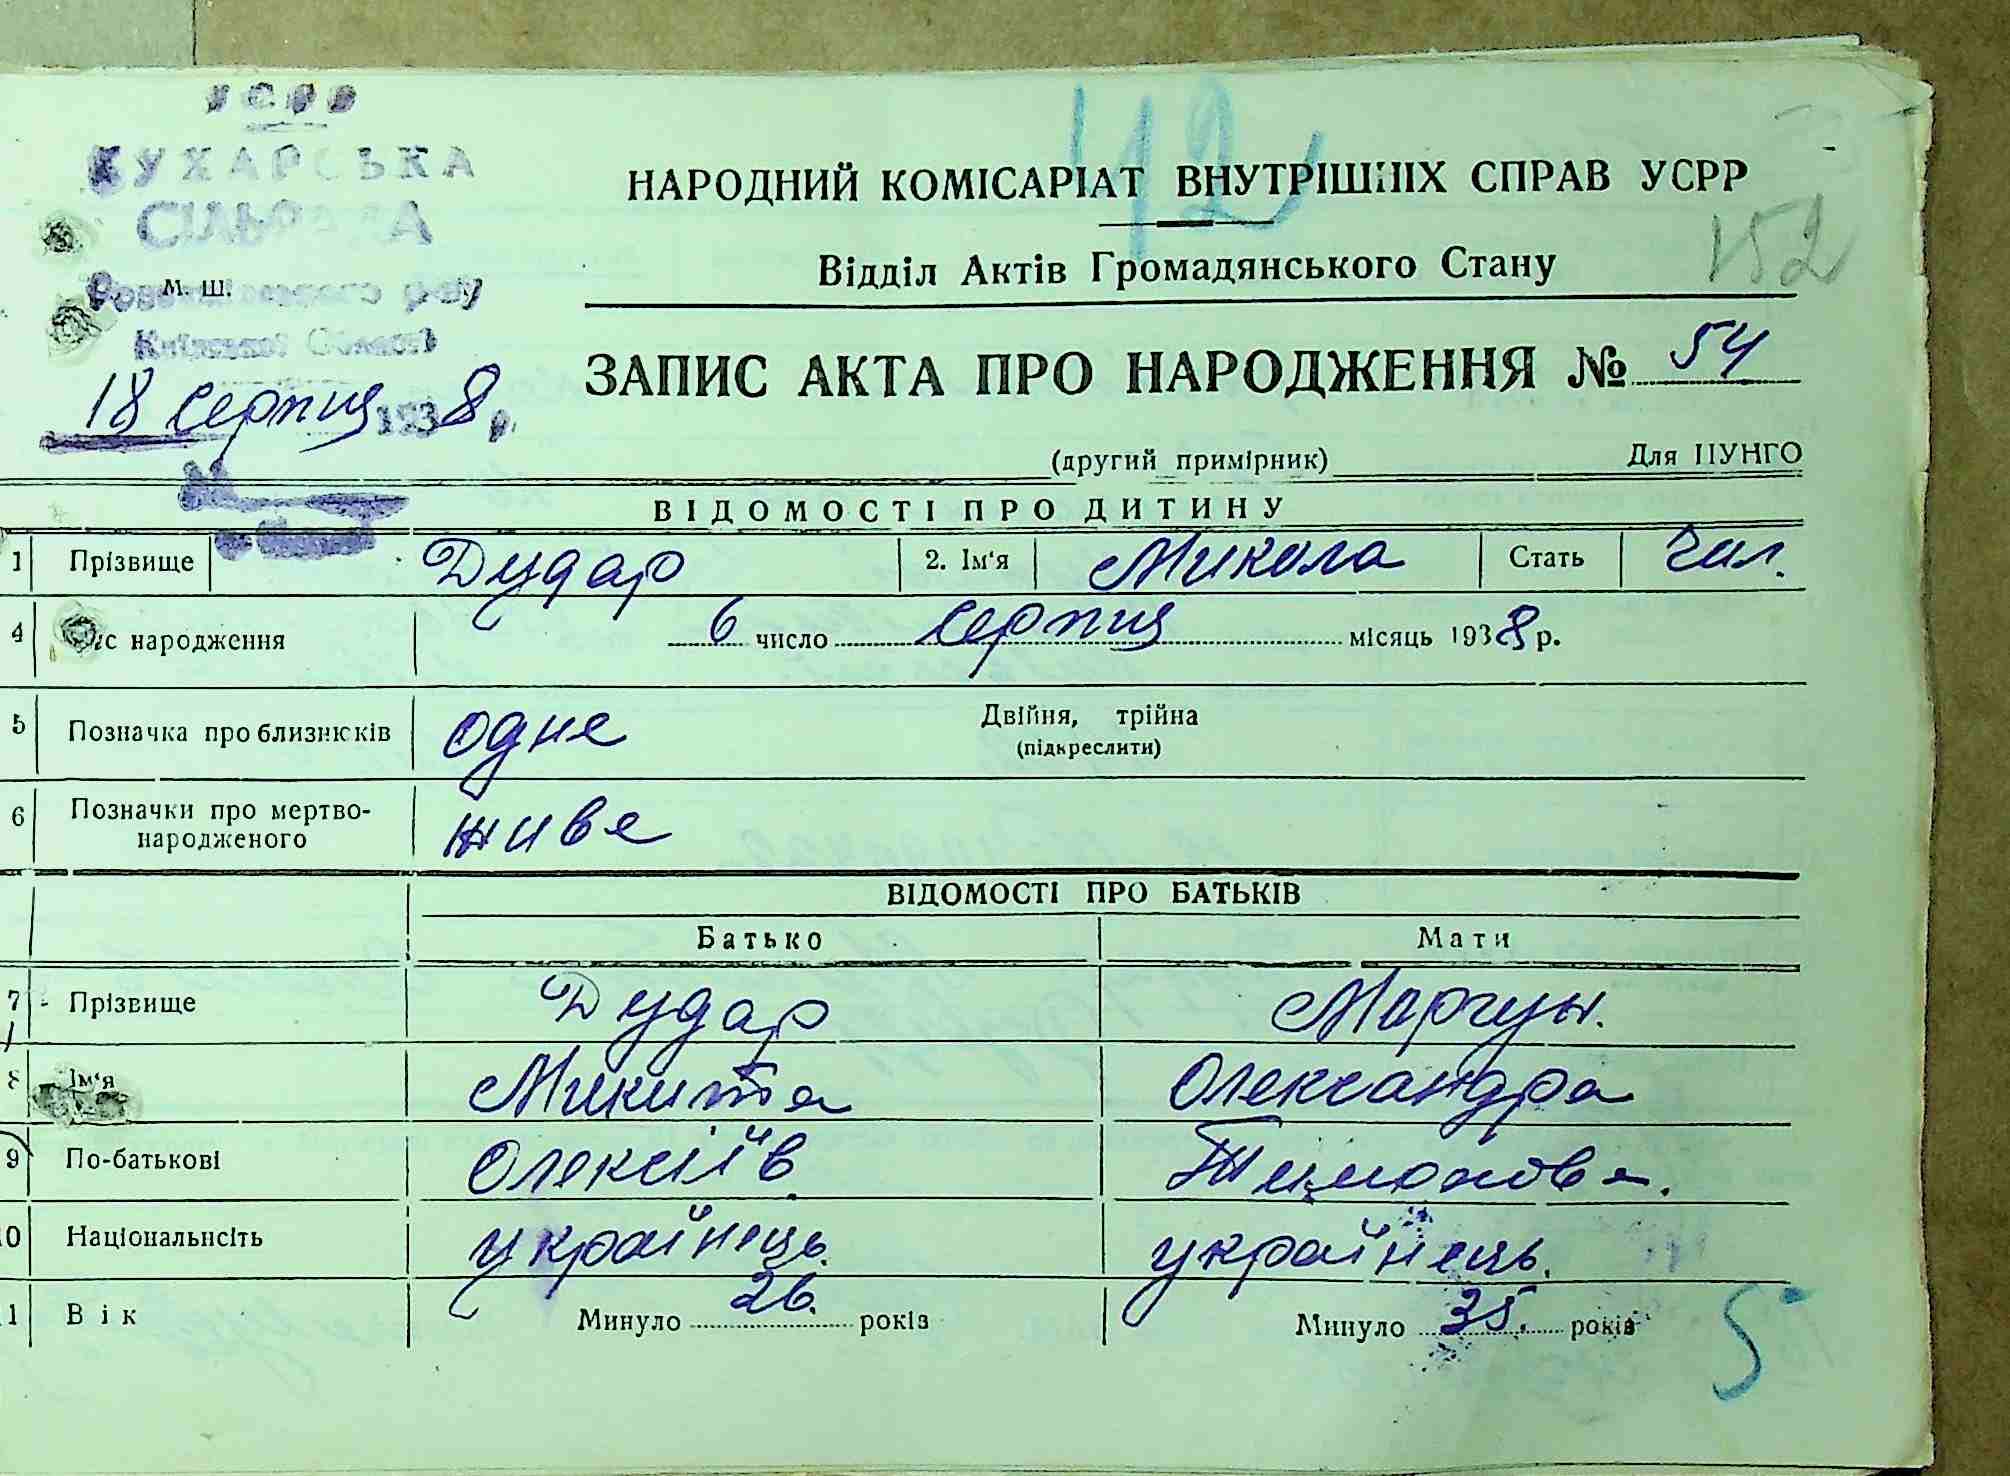 УСРР
КУХАРСЬКА
СІЛЬРАДА
М. Ш.
р-ну
Київської Області
18 серпня 1938 р.
42
НАРОДНИЙ КОМІСАРІАТ ВНУТРІШНІХ СПРАВ УСРР
152
Відділ Актів Громадянського Стану
ЗАПИС АКТА ПРО НАРОДЖЕННЯ № 54
(другий примірник) Для ЦУНГО
ВІДОМОСТІ ПРО ДИТИНУ
1 Прізвище Дудар 2. Ім'я Микола Стать чол.
4 Час народження 6 число серпня місяць 1938 р.
5 Позначка про близнюків одне Двійня, трійна
(підкреслити)
6 Позначки про мертво-
народженого живе
ВІДОМОСТІ ПРО БАТЬКІВ
Батько Мати
7 Прізвище Дудар Моргун.
8 Ім'я Микита Олександра
9 По-батькові Олексіїв Тимонова.
10 Національність українець. українець.
11 Вік Минуло 26. років Минуло 35. років
5